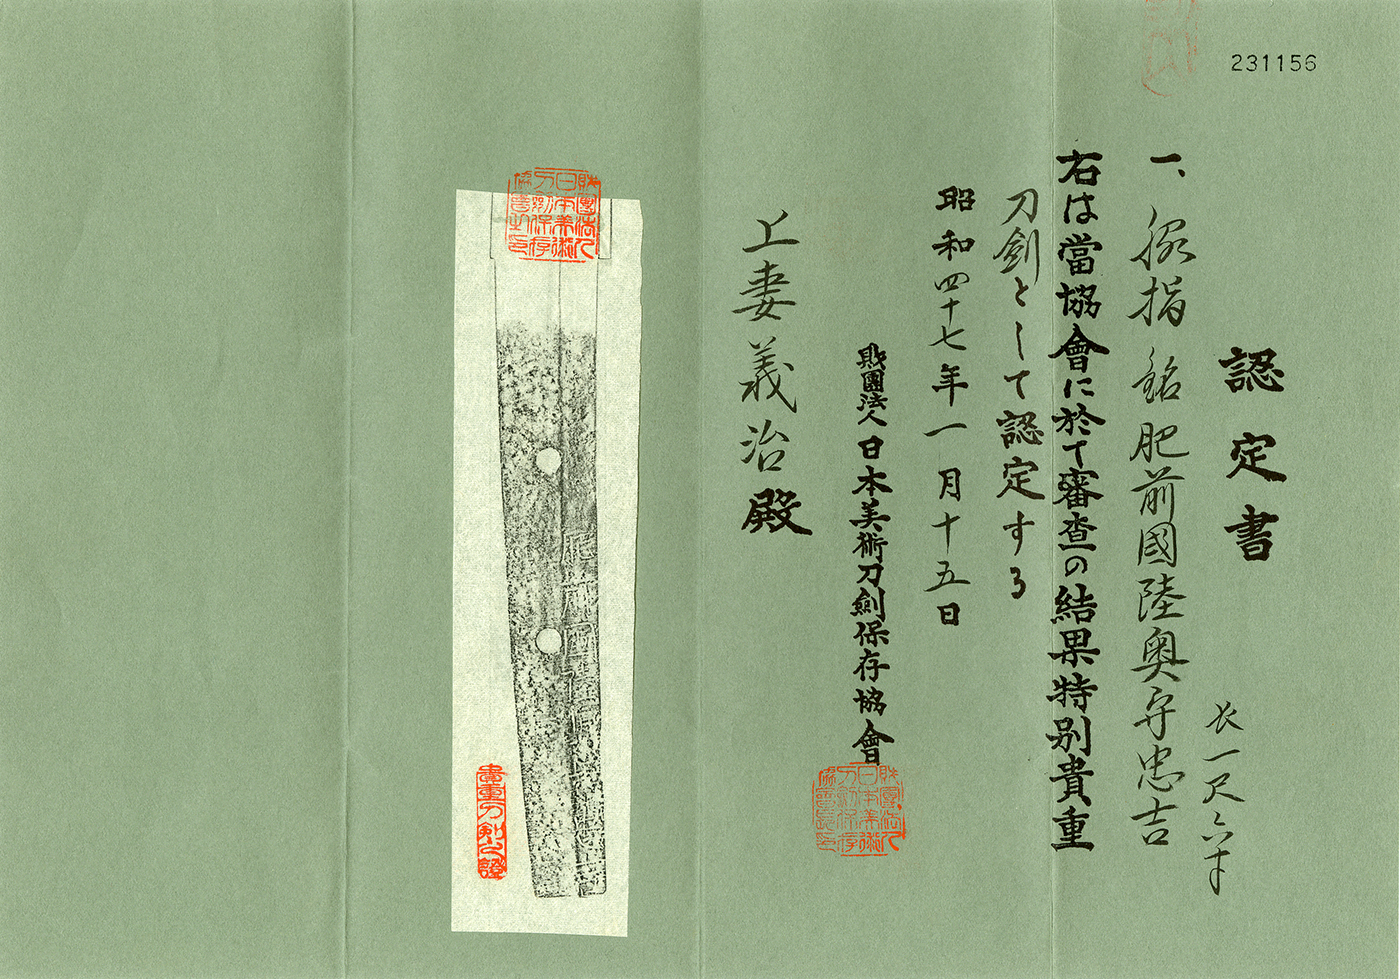 231156
認定書
一、脇指 銘 肥前國陸奥守忠吉
长一尺六寸
右は當協會に於て審査の結果特別貴重
刀劍として認定する
昭和四十七年一月十五日
財團法人日本美術刀劍保存協會
財團法人日本美術刀劍保存協會長印
上妻義治殿
財團法人日本美術刀劍保存協會之印
貴重刀剣之證